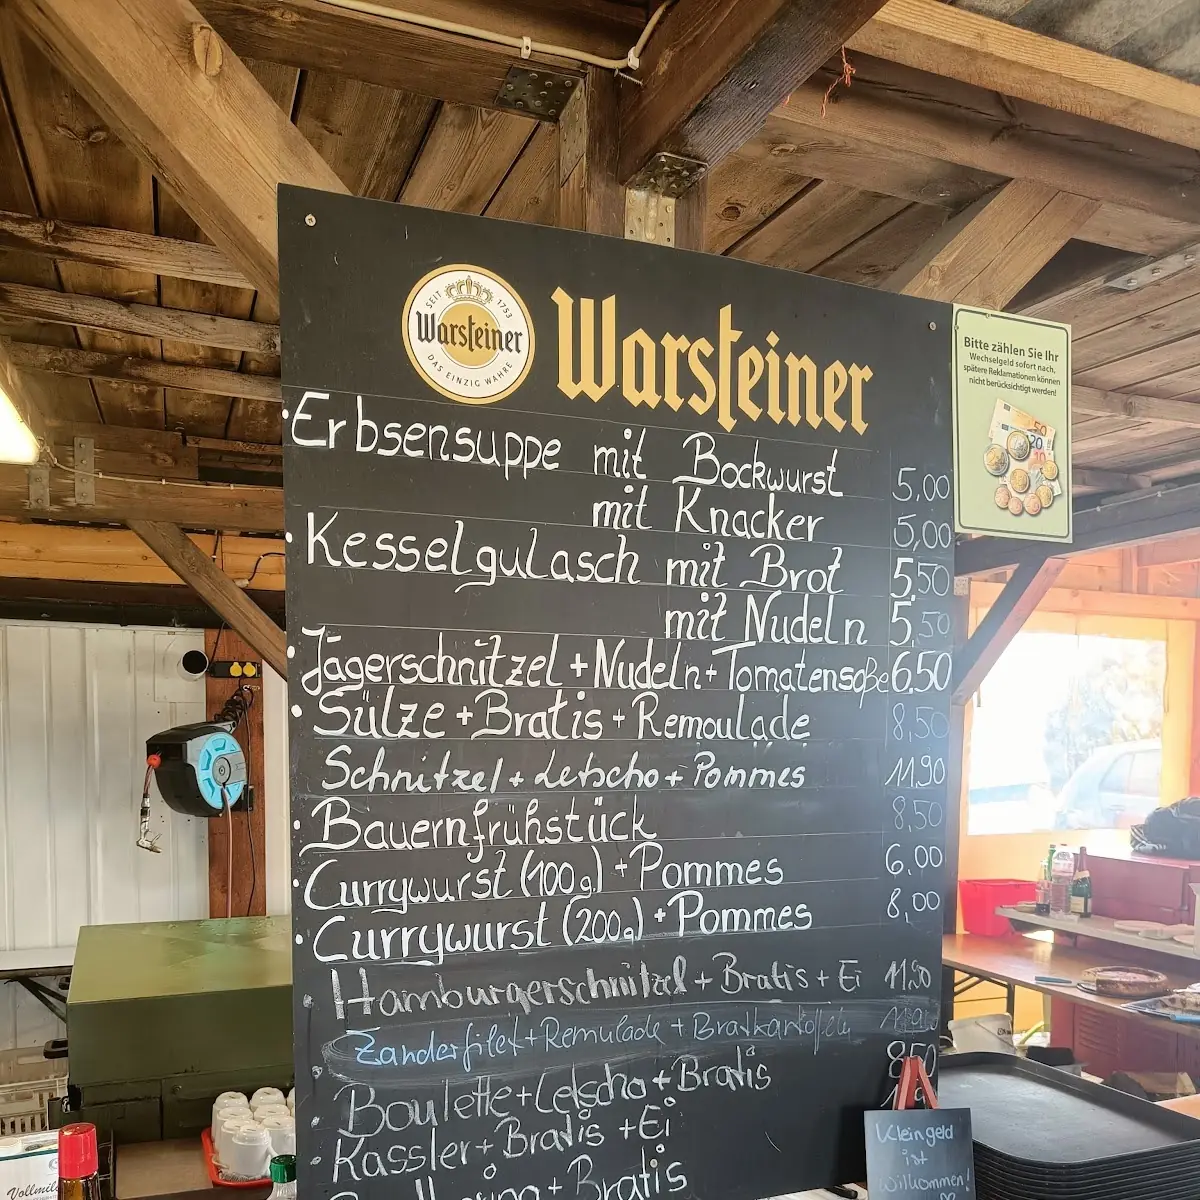 SEIT 1753
Warsteiner
DAS EINZIG WAHRE
Warsteiner
Bitte zählen Sie Ihr
Wechselgeld sofort nach,
spätere Reklamationen können
nicht berücksichtigt werden!
• Erbsensuppe mit Bockwurst 5,00
mit Knacker 5,00
• Kesselgulasch mit Brot 5,50
mit Nudeln 5,50
• Jägerschnitzel + Nudeln + Tomatensoße 6.50
• Sülze + Bratis + Remoulade 8,50
Schnitzel + Letscho + Pommes 11,90
• Bauernfrühstück 8,50
• Currywurst (100g) + Pommes 6,00
• Currywurst (200g) + Pommes 8,00
• Hamburgerschnitzel + Bratis + Ei 11,90
• Zanderfilet + Remulade + Bratkartoffeln
• Boulette + Letscho + Bratis 8,50
• Kassler + Bratis + Ei
+ Bratis
Kleingeld
ist
willkommen!
Vollmilch